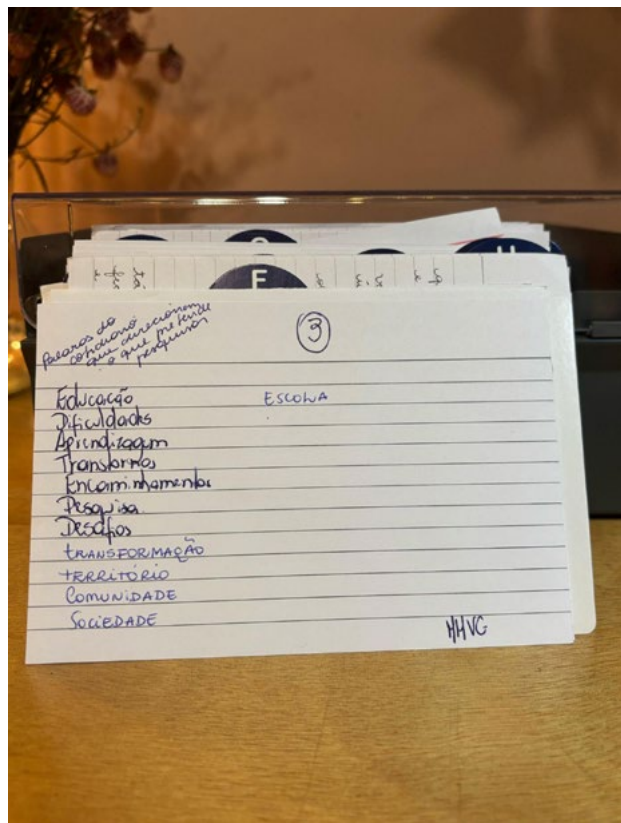 Palavras do
cotidiano
que direcionam
o que pretende
pesquisar
3
Educação
ESCOLA
Dificuldades
Aprendizagem
Transtornos
Encaminhamentos
Pesquisa
Desafios
TRANSFORMAÇÃO
TERRITÓRIO
COMUNIDADE
SOCIEDADE
HHVG
E